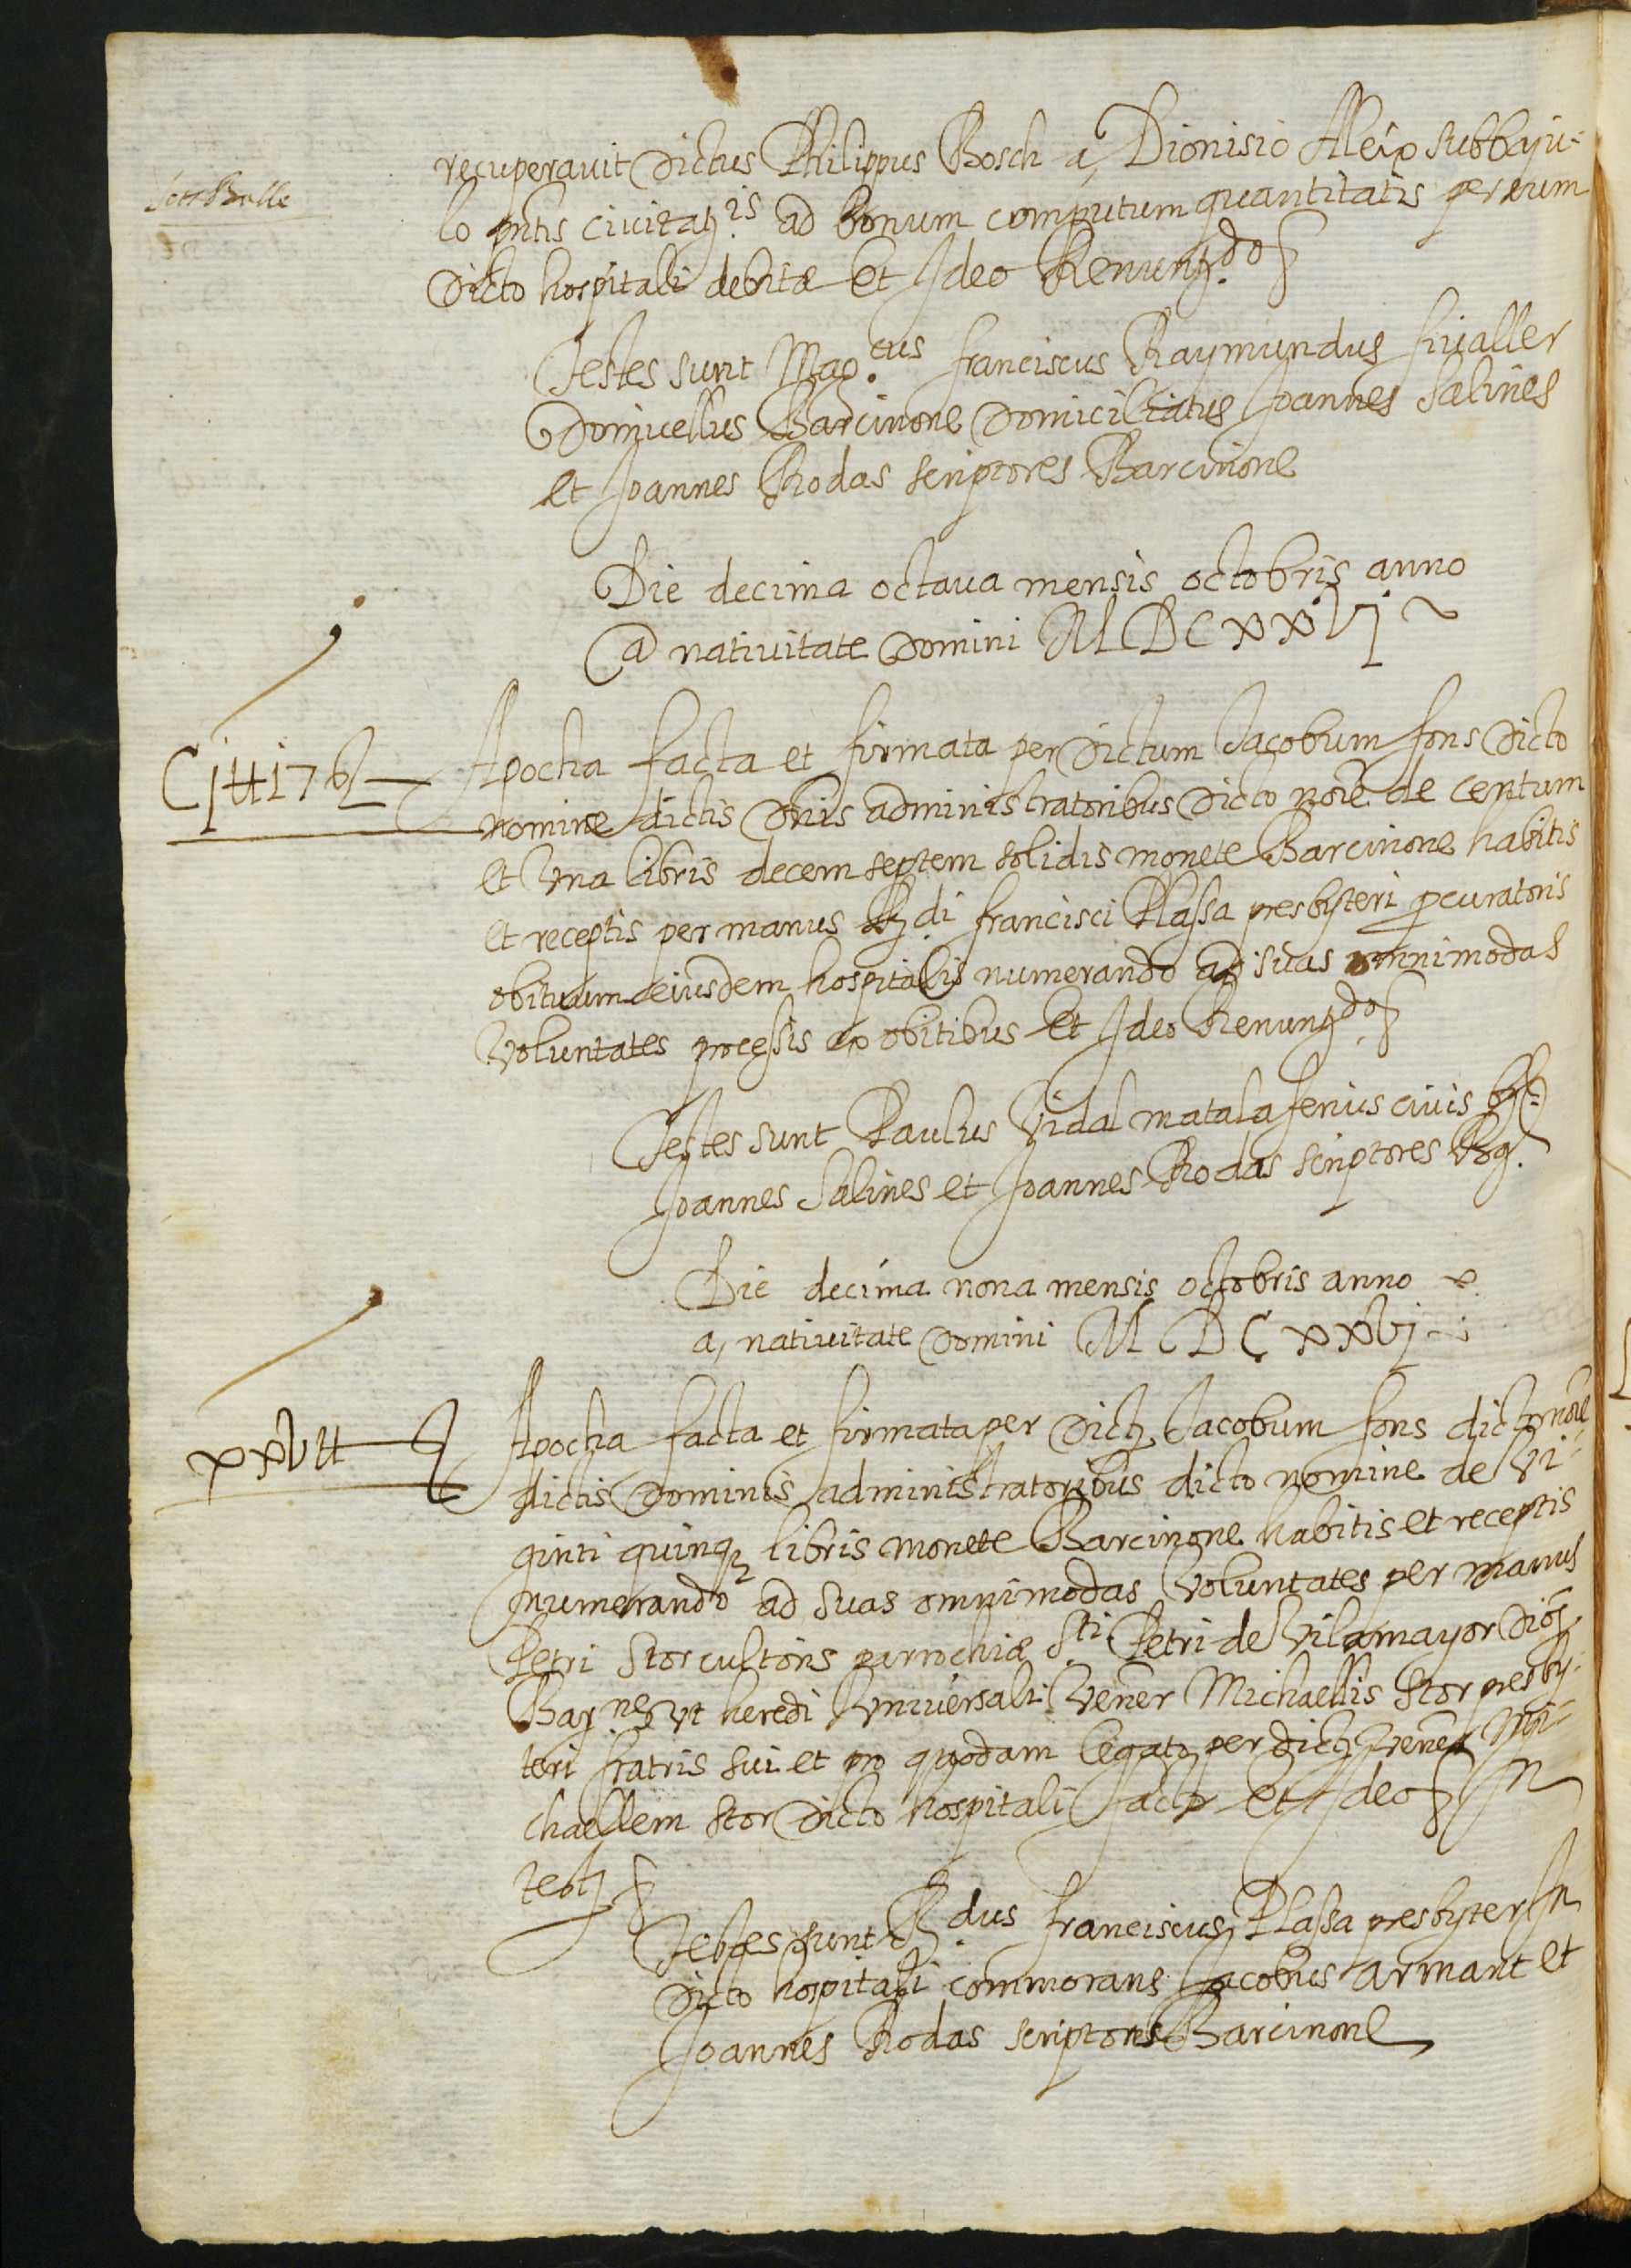 recuperavit dictus Philippus Bosch a, Dionisio Aleix subbaju-
Sots Balle
lo pntis civitat.is ad bonum computum quantitatis per eum
dicto hospitali debitæ Et Ideo Renunt.do
Testes sunt Mag.cus franciscus Raymundus fivaller
Domicellus Barcinone Domiciliatus Joannes Salines
et Joannes Rodas scriptores Barcinone
Die decima octava mensis octobris anno
a nativitate Domini MDCxxvj
Cj ℔ 17 ß
Apocha facta et firmata per dictum Jacobum fons dicto
nomine dictis dnis administratoribus dicto noīe de centum
et vna libris decem septem solidis monete Barcinone habitis
et receptis per manus R.di francisci Plassa presbyteri pcuratoris
obituum eiusdem hospitalis numerando ad suas omnimodas
voluntates processis ex obitibus Et Ideo Renunt.do
Testes sunt Paulus Vidal matalaserius civis
Joannes Salines et Joannes Rodas scriptores
Die decima nona mensis octobris anno
a, nativitate Domini MDCxxvj
xxv ℔
Apocha facta et firmata per dict. Jacobum fons dicto noīe
dictis Dominis administratoribus dicto nomine de vi-
ginti quinq libris monete Barcinone habitis et receptis
numerando ad suas omnimodas voluntates per manus
Petri Stor cultoris parrochiæ S.ti Petri de Vilamayor dioc.
Bar.ne vt heredi vniversali Vener Michaellis Stor presby-
teri fratris sui et pro quodam legato per dict. vener Mi-
chaellem Stor dicto hospitali facto Et Ideo In
test.
Testes sunt R.dus franciscus Plassa presbyter In
dicto hospitali commorans Jacobus Armant et
Joannes Rodas scriptores Barcinone